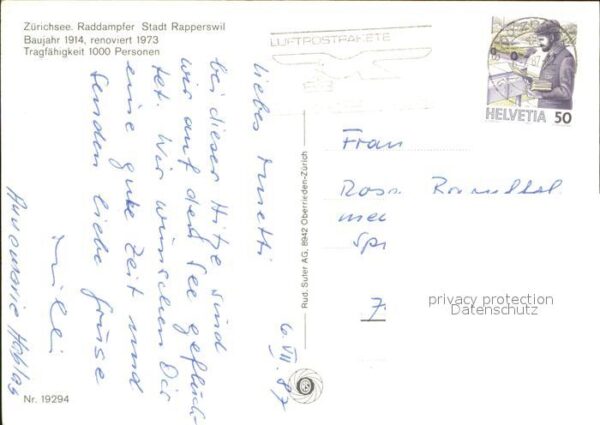 Zürichsee. Raddampfer Stadt Rapperswil
Baujahr 1914, renoviert 1973
Tragfähigkeit 1000 Personen
LUFTPOSTPAKETE
HELVETIA 50
6. VII. 87
Liebes Musetti
bei dieser Hitze sind
wir auf den See geflüch-
tet. Wir wünschen Dir
eine gute Zeit und
senden liebe Grüsse
Annemarie
Rud. Suter AG, 8942 Oberrieden-Zürich
Frau
Rosa
Spi
7
privacy protection
Datenschutz
Nr. 19294